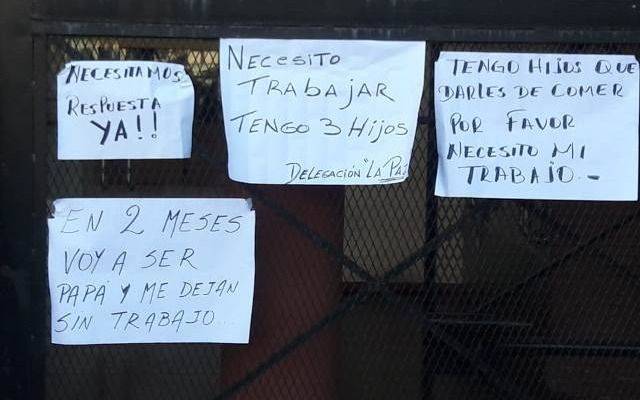 NECESITAMOS
RESPUESTA
YA!!
NECESITO
TRABAJAR
TENGO 3 HIJOS
DELEGACIÓN "LA PAZ
TENGO HIJOS QUE
DARLES DE COMER
POR FAVOR
NECESITO MI
TRABAJO.-
EN 2 MESES
VOY A SER
PAPÁ Y ME DEJAN
SIN TRABAJO...